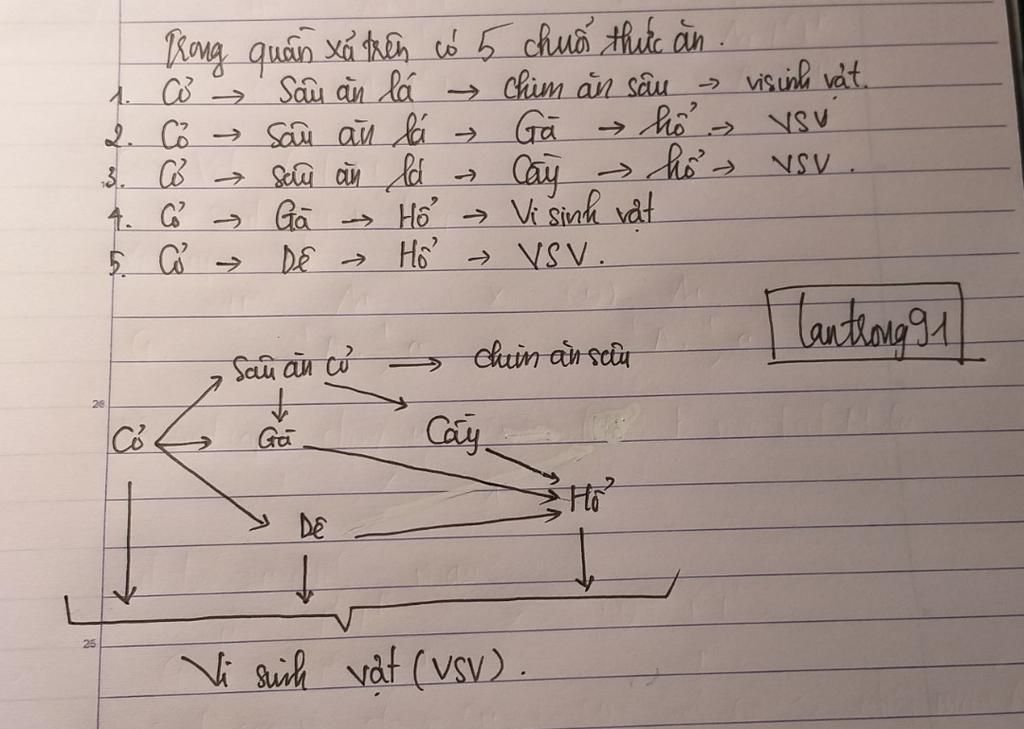 Trong quần xã trên có 5 chuỗi thức ăn.
1. Cỏ → Sâu ăn lá → chim ăn sâu → vi sinh vật.
2. Cỏ → sâu ăn lá → Gà → hổ → VSV
3. Cỏ → sâu ăn lá → Cầy → hổ → VSV.
4. Cỏ → Gà → Hổ → Vi sinh vật
5. Cỏ → Dê → Hổ → VSV.
lantrong91
Sâu ăn cỏ → chim ăn sâu
26
Cỏ → Gà Cầy
Hổ
Dê
25
Vi sinh vật (VSV).